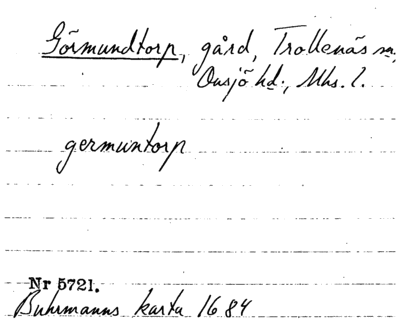 Görmundtorp, gård, Trollenäs sn,
Onsjö hd., Mhs. l.
germuntorp
Nr 5721.
Buhrmanns karta 1684